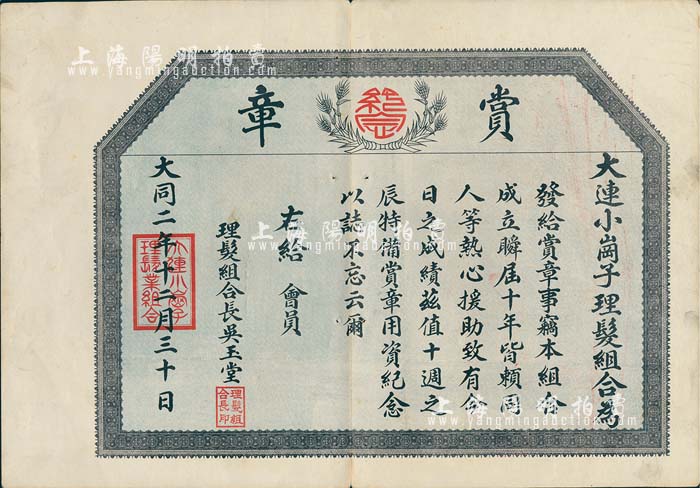 上海陽明拍賣
www.yangmingauction.com
賞章
紀念
大連小崗子理髮組合爲
發給賞章事竊本組合
成立瞬届十年皆賴同
人等熱心援助致有今
日之成績兹值十週之
辰特備賞章用資紀念
以誌不忘云爾
右給 會員
理髮組合長吳玉堂
理髮組合長印
大同二年十二月三十日
大連小崗子理髮業組合
上海陽明拍賣
www.yangmingauction.com
上海陽明拍賣
www.yangmingauction.com